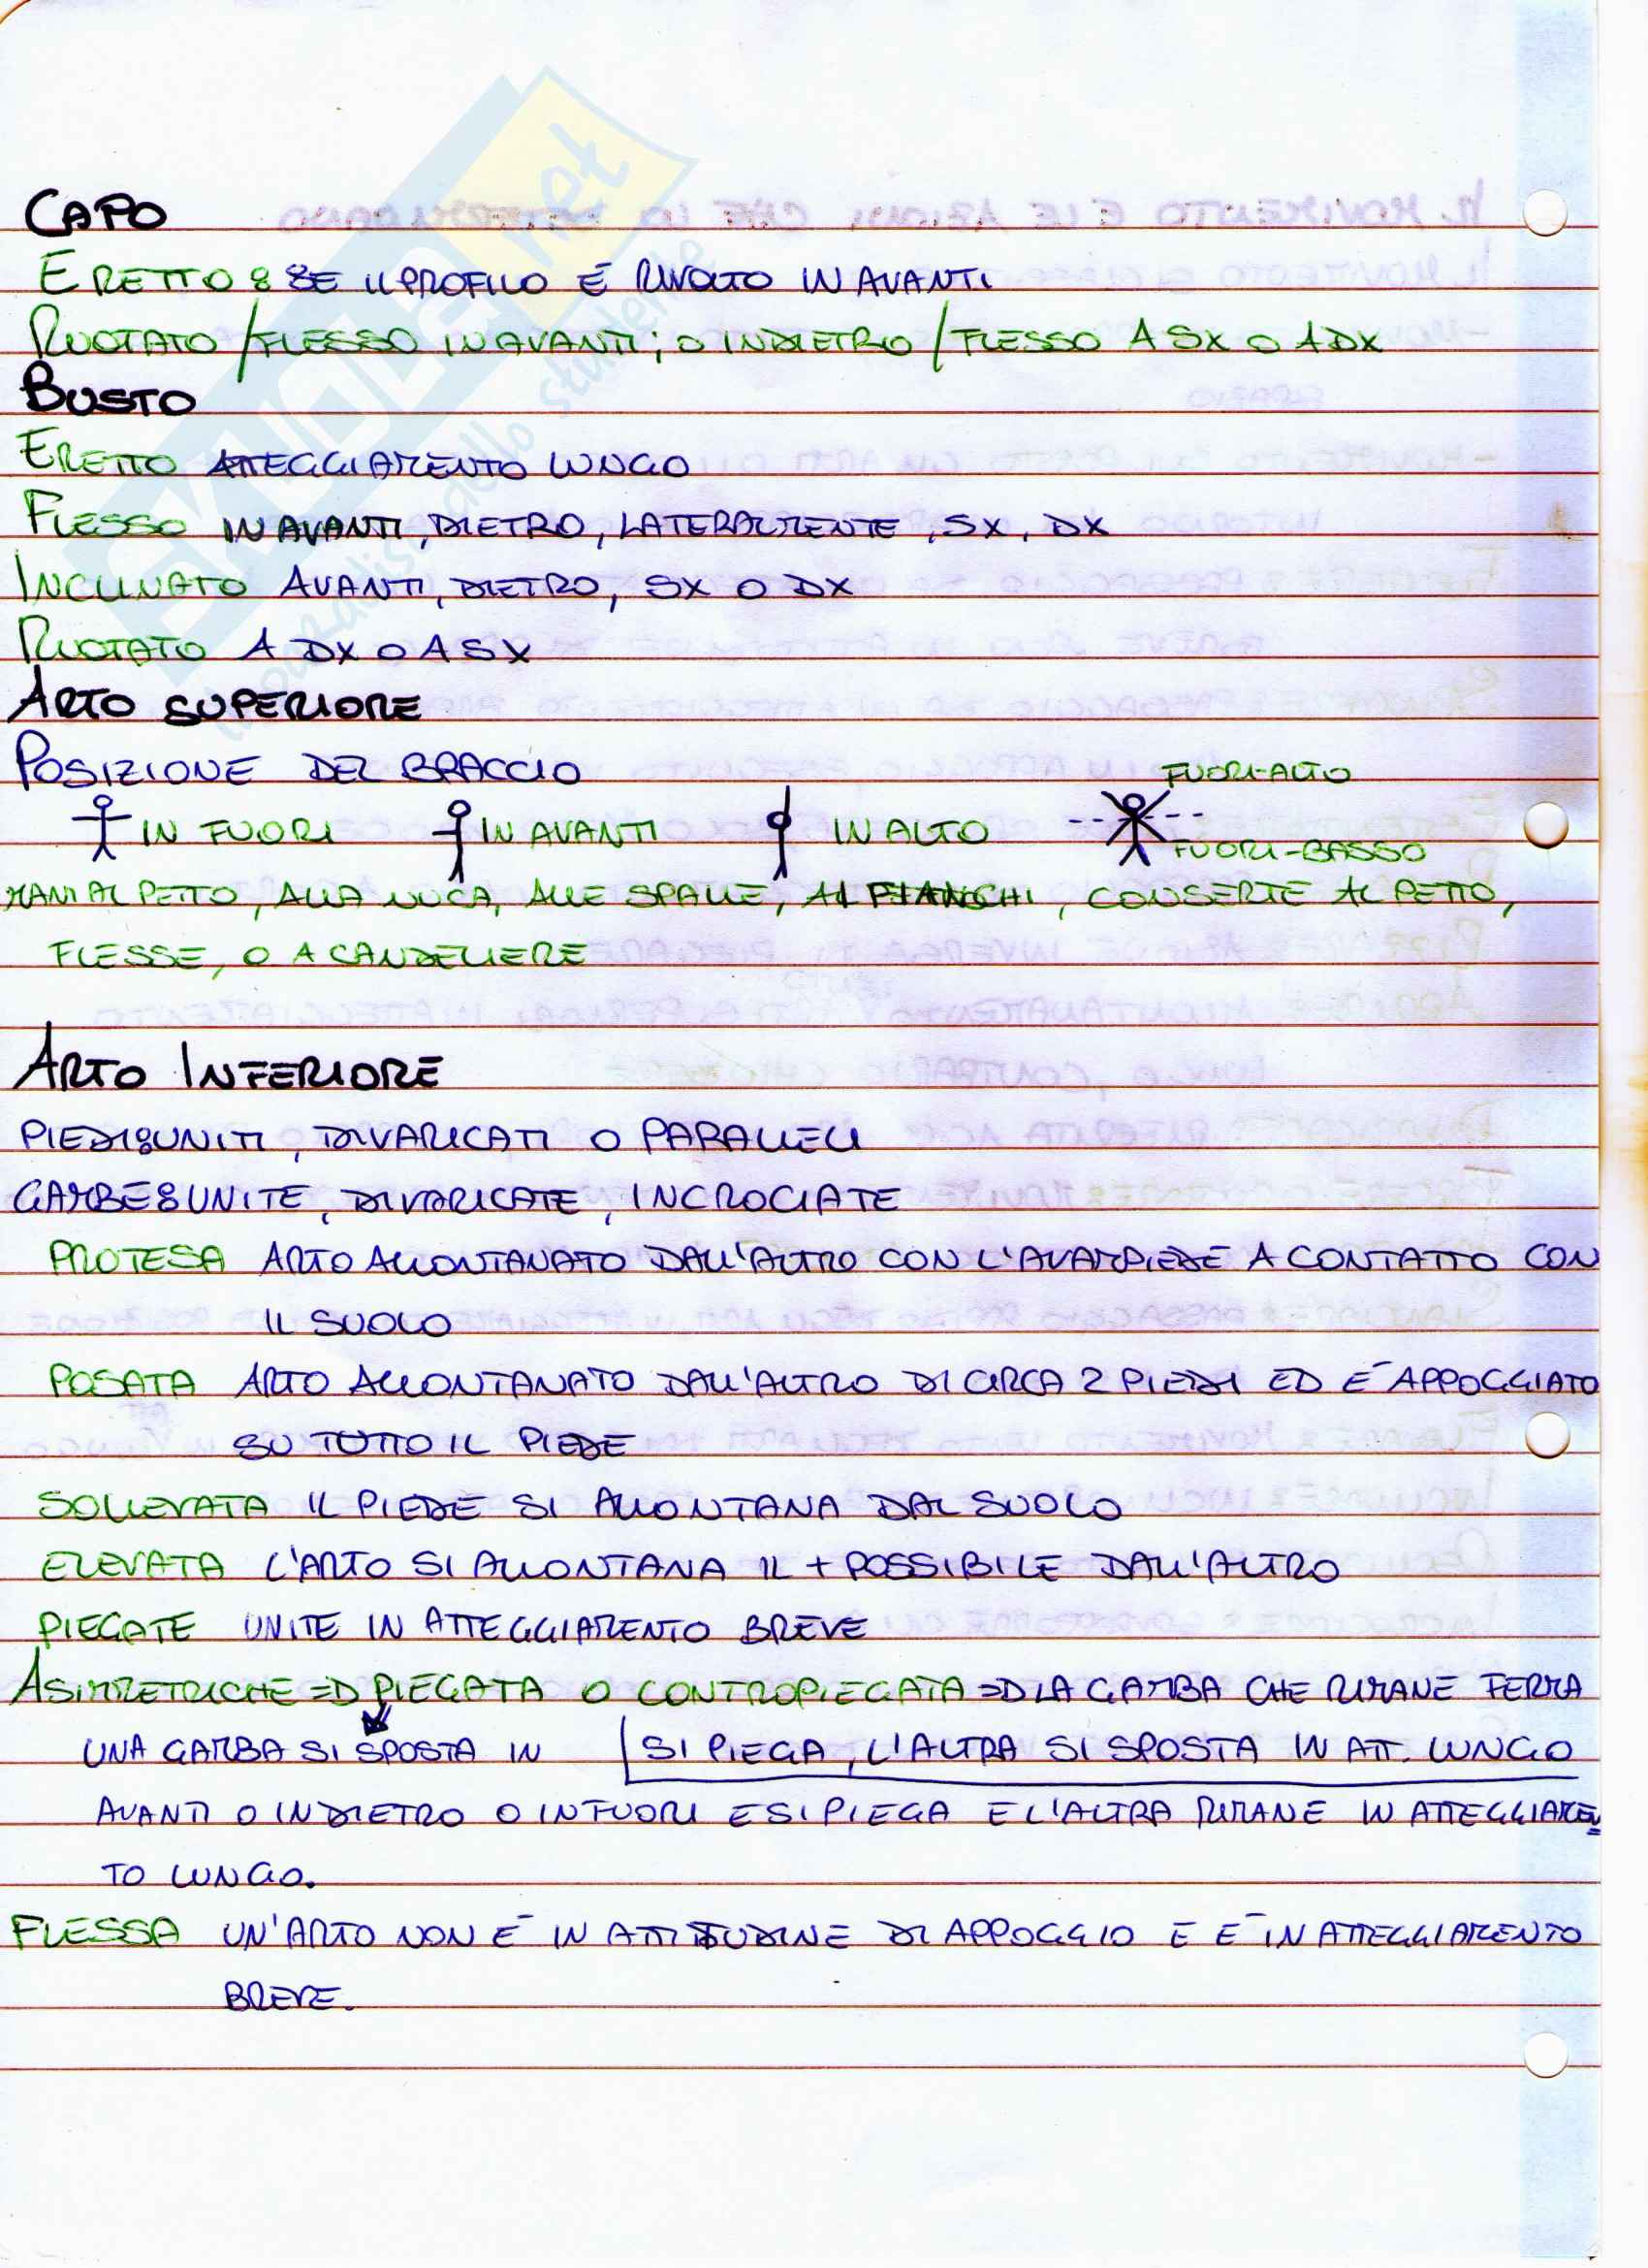 CAPO
ERETTO: SE IL PROFILO É RIVOLTO IN AVANTI
RUOTATO / FLESSO IN AVANTI; O INDIETRO / FLESSO A SX O A DX
BUSTO
ERETTO ATTEGGIAMENTO LUNGO
FLESSO IN AVANTI, DIETRO, LATERALMENTE, SX, DX
INCLINATO AVANTI, DIETRO, SX O DX
RUOTATO A DX O A SX
ARTO SUPERIORE
POSIZIONE DEL BRACCIO
FUORI-ALTO
IN FUORI IN AVANTI IN ALTO
FUORI-BASSO
MANI AL PETTO, ALLA NUCA, ALLE SPALLE, AI FIANCHI, CONSERTE AL PETTO,
FLESSE, O A CANDELIERE
ARTO INFERIORE
PIEDI: UNITI, DIVARICATI O PARALLELI
GAMBE: UNITE, DIVARICATE, INCROCIATE
PROTESA ARTO ALLONTANATO DALL'ALTRO CON L'AVAMPIEDE A CONTATTO CON
IL SUOLO
POSATA ARTO ALLONTANATO DALL'ALTRO DI CIRCA 2 PIEDI ED É APPOGGIATO
SU TUTTO IL PIEDE
SOLLEVATA IL PIEDE SI ALLONTANA DAL SUOLO
ELEVATA L'ARTO SI ALLONTANA IL + POSSIBILE DALL'ALTRO
PIEGATE UNITE IN ATTEGGIAMENTO BREVE
ASIMMETRICHE => PIEGATA O CONTROPIEGATA => LA GAMBA CHE RIMANE FERMA
UNA GAMBA SI SPOSTA IN SI PIEGA, L'ALTRA SI SPOSTA IN ATT. LUNGO
AVANTI O INDIETRO O IN FUORI E SI PIEGA E L'ALTRA RIMANE IN ATTEGGIAMEN
TO LUNGO.
FLESSA UN'ARTO NON É IN ATTITUDINE DI APPOGGIO E É IN ATTEGGIAMENTO
BREVE.
SKUOLA.net
il paradiso dello studente